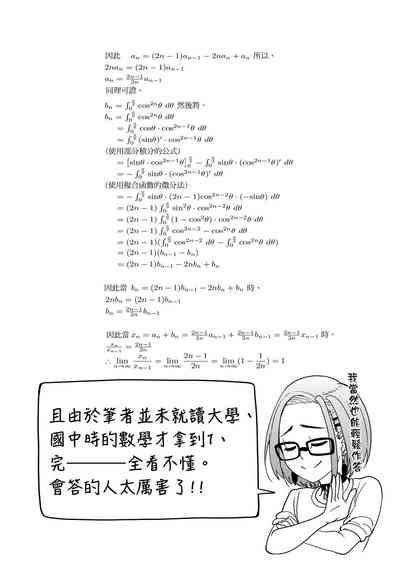 因此 aₙ = (2n − 1)aₙ₋₁ − 2naₙ + aₙ 所以、
2naₙ = (2n − 1)aₙ₋₁
aₙ = \frac{2n−1}{2n}aₙ₋₁
同理可證。
bₙ = ∫₀^{\frac{π}{2}} cos²ⁿθ dθ 然後將、
bₙ = ∫₀^{\frac{π}{2}} cos²ⁿθ dθ
= ∫₀^{\frac{π}{2}} cosθ · cos²ⁿ⁻¹θ dθ
= ∫₀^{\frac{π}{2}} (sinθ)′ · cos²ⁿ⁻¹θ dθ
(使用部分積分的公式)
= [sinθ · cos²ⁿ⁻¹θ]₀^{\frac{π}{2}} − ∫₀^{\frac{π}{2}} sinθ · (cos²ⁿ⁻¹θ)′ dθ
= − ∫₀^{\frac{π}{2}} sinθ · (cos²ⁿ⁻¹θ)′ dθ
(使用複合函數的微分法)
= − ∫₀^{\frac{π}{2}} sinθ · (2n − 1)cos²ⁿ⁻²θ · (−sinθ) dθ
= (2n − 1) ∫₀^{\frac{π}{2}} sin²θ · cos²ⁿ⁻²θ dθ
= (2n − 1) ∫₀^{\frac{π}{2}} (1 − cos²θ) · cos²ⁿ⁻²θ dθ
= (2n − 1) ∫₀^{\frac{π}{2}} cos²ⁿ⁻² − cos²ⁿθ dθ
= (2n − 1)(∫₀^{\frac{π}{2}} cos²ⁿ⁻² dθ − ∫₀^{\frac{π}{2}} cos²ⁿθ dθ)
= (2n − 1)(bₙ₋₁ − bₙ)
= (2n − 1)bₙ₋₁ − 2nbₙ + bₙ
因此當 bₙ = (2n − 1)bₙ₋₁ − 2nbₙ + bₙ 時、
2nbₙ = (2n − 1)bₙ₋₁
bₙ = \frac{2n−1}{2n}bₙ₋₁
因此當 xₙ = aₙ + bₙ = \frac{2n−1}{2n}aₙ₋₁ + \frac{2n−1}{2n}bₙ₋₁ = \frac{2n−1}{2n}xₙ₋₁ 時
\frac{xₙ}{xₙ₋₁} = \frac{2n−1}{2n}
∴ lim_{n→∞} \frac{xₙ}{xₙ₋₁} = lim_{n→∞} \frac{2n − 1}{2n} = lim_{n→∞} (1 − \frac{1}{2n}) = 1
我當然也能輕鬆作答
且由於筆者並未就讀大學、
國中時的數學才拿到1、
完————全看不懂。
會答的人太厲害了!!